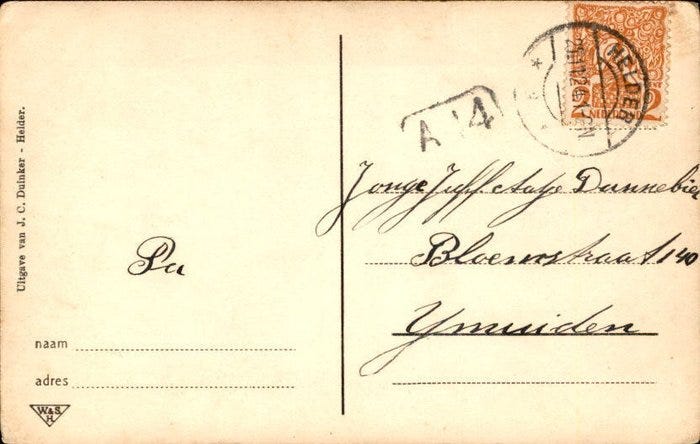 Uitgave van J. C. Duinker - Helder.
Pa
naam
adres
W&S.
H.
HELDER
2
A 14
Jonge Juff Aatje Dannebier
Bloemstraat 140
Ymuiden